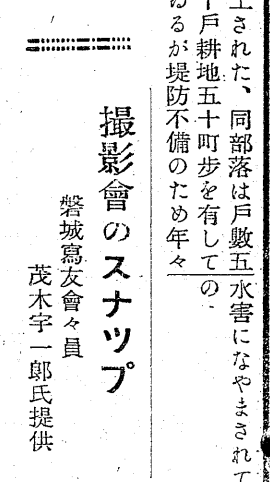 上された、同部落は戸數五
十戸耕地五十町步を有して
ゐるが堤防不備のため年々
水害になやまされて
の
撮影會のスナツプ
磐城寫友會々員
茂木宇一郎氏提供